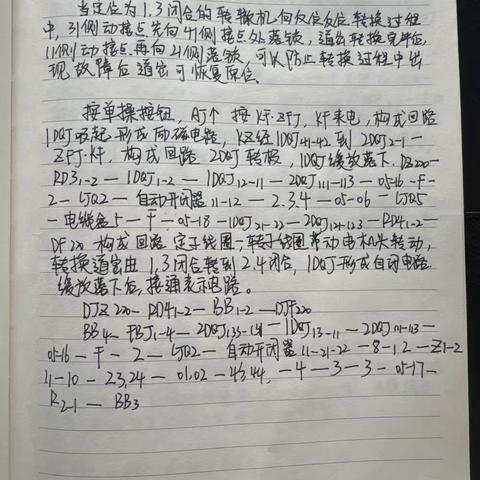 当定位为1.3闭合的转辙机向反位转换过程
中, 31侧动接点先向41侧接点处落锁, 道岔转换完毕后,
11侧动接点再向21侧落锁, 可以防止转换过程中出
现故障后道岔可恢复原位。
按单操按钮, AJ↑ 按KF-ZFJ, KF来电, 构成回路
1DQJ吸起 形成励磁电路, KZ经1DQJ41-42到2DQJ2-1—
ZFJ-KF. 构成回路 2DQJ转极, 1DQJ缓放落下. DZ220—
RD3 1-2—1DQJ1-2—1DQJ12-11—2DQJ111-113—05-16-F-
2—LJQ2—自动开闭器11-12—2.3.4—05-06—LJQ5
—电缆盒5—F—05-18-1DQJ21-22—2DQJ121-123—RD4 1-2—
DF220 构成回路 定子线圈, 转子线圈带动电机头转动,
转换道岔由1.3闭合转到2.4闭合, 1DQJ形成自闭电路
缓放落下后, 接通表示电路。
DJZ220—RD4 1-2—BB1-2—DJF220
BB4—FBJ1-4—2DQJ133-131—1DQJ13-11—2DQJ111-113—
05-16—F—2—LJQ2—自动开闭器11-21-22—8-12—Z1-2
11-10—23,24—01,02—43,44,—4—3—3—05-17—
R2-1—BB3